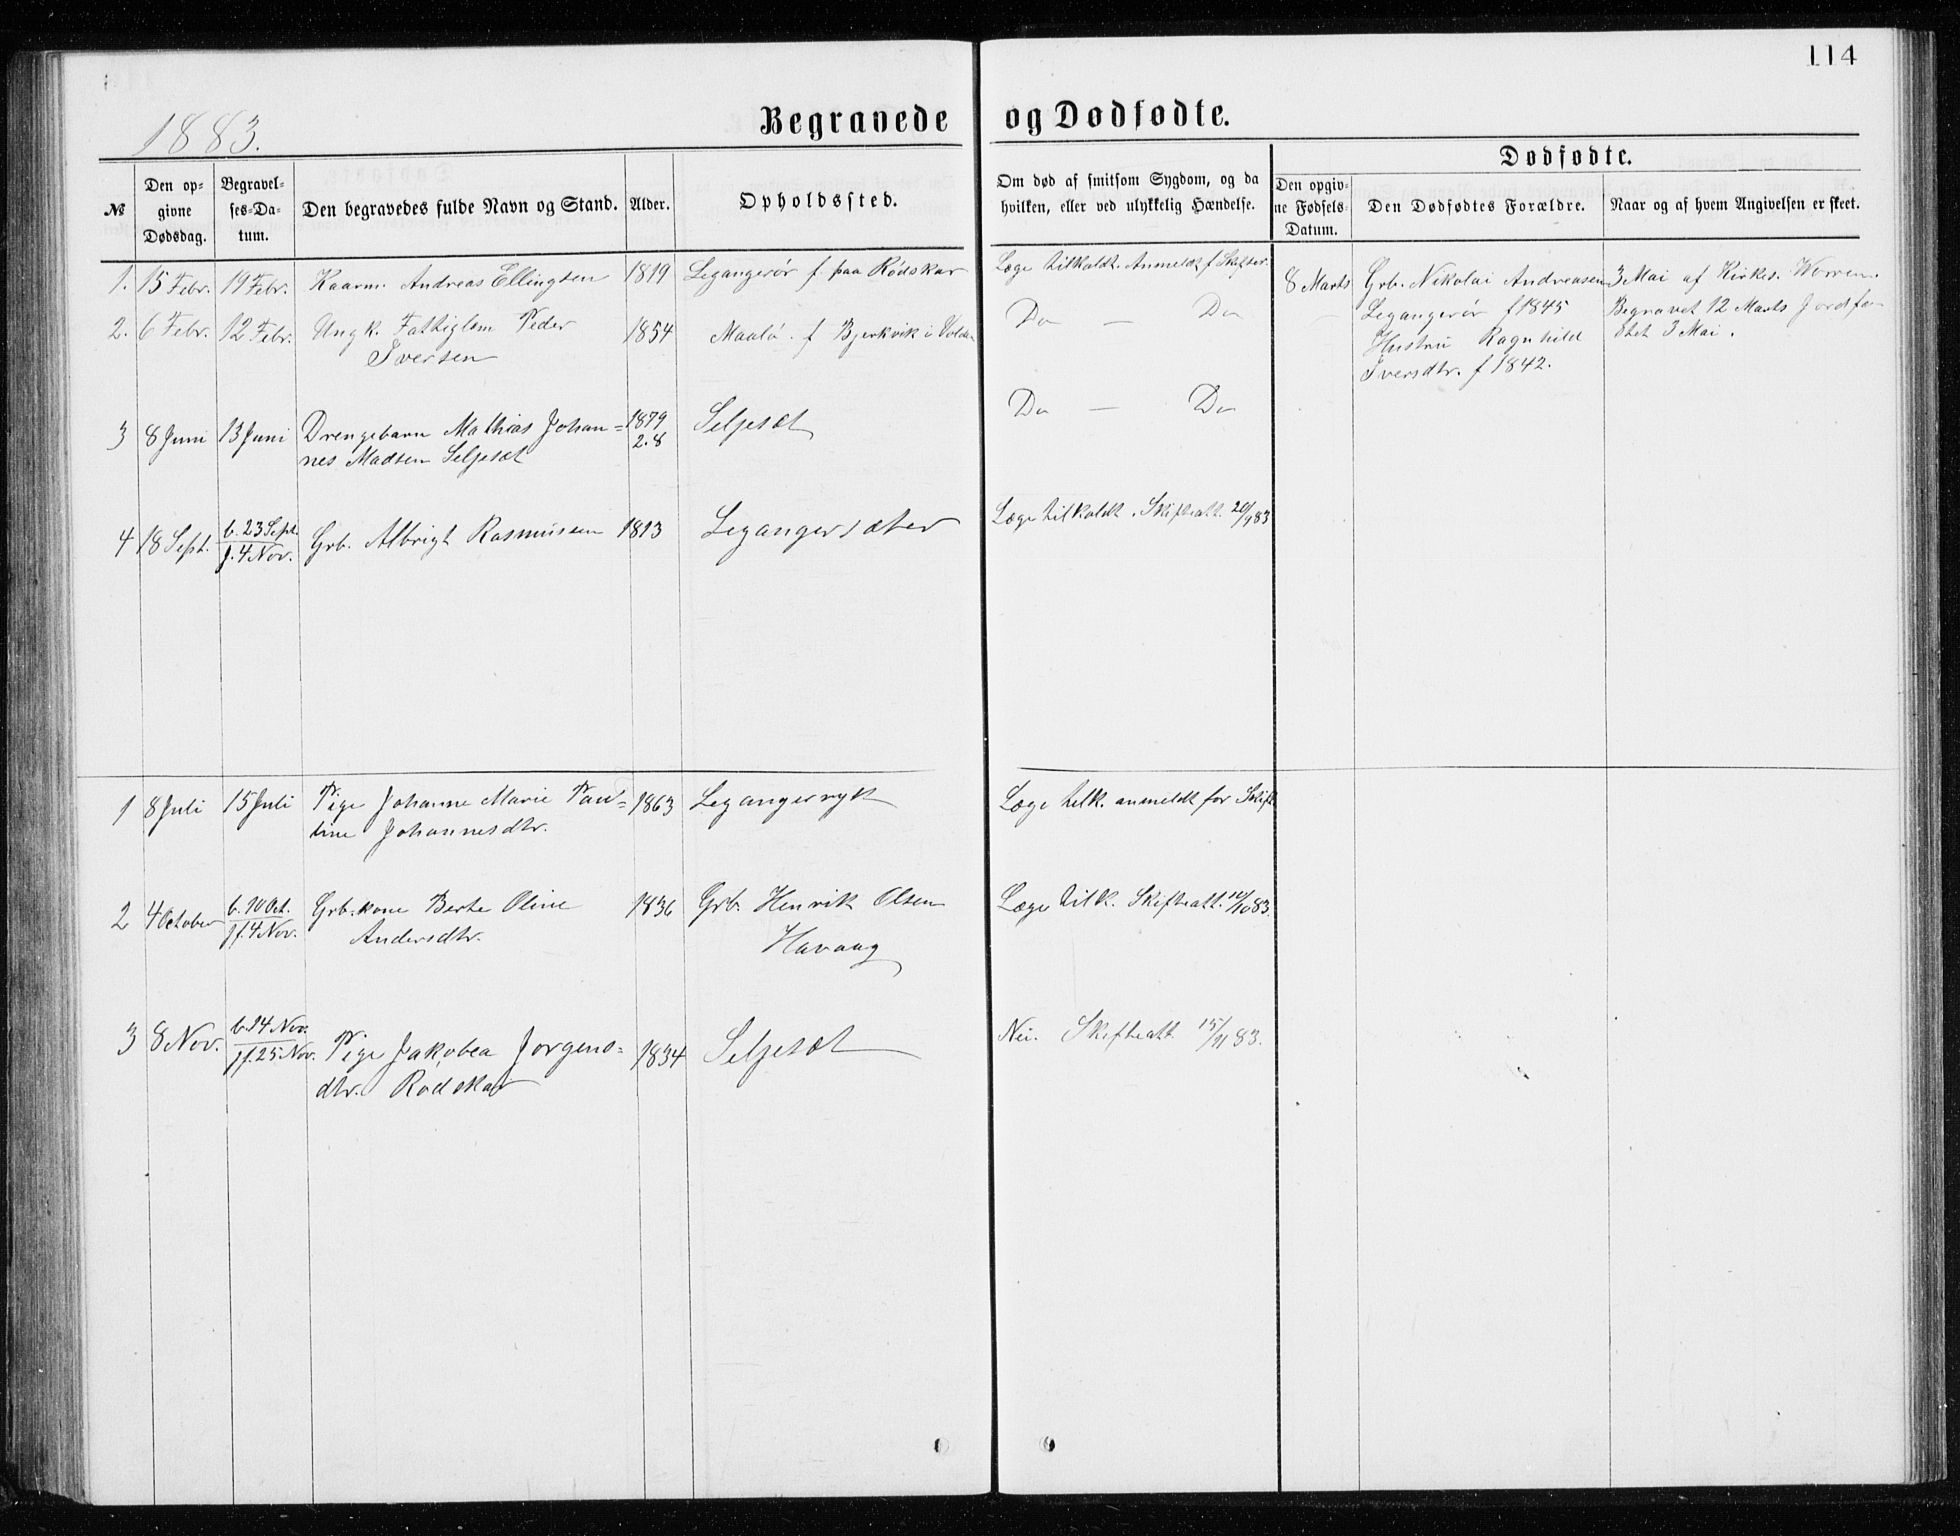 114
1883.
Begravede og Dødfødte.
№
Den op-
givne
Dødsdag.
Begravel-
ses-Da-
tum.
Den begravedes fulde Navn og Stand.
Alder.
Opholdssted.
Om død af smitsom Sygdom, og da
hvilken, eller ved ulykkelig Hændelse.
Dødfødte.
Den opgiv-
ne Fødsels-
Datum.
Den Dødfødtes Forældre.
Naar og af hvem Angivelsen er skeet.
1. 15 Febr. 19 Febr. Kaarm. Andreas Ellingsen 1819 Legangerør f. paa Rødskar Læge tilkaldt. Anmeldt f. Skifter.
2. 6 Febr. 12 Febr. Ungk. Fattiglem Peder 1854 Maalø. f Bjerkvik i Volden Do — Do
Iversen
3 8 Juni 13 Juni Drengebarn Mathias Johan= 1879 Seljesæt Do — Do
nes Madsen Seljesæt 2.8
4 18 Sept. b. 23 Sept. Grb. Albrigt Rasmussen 1813 Legangersæter Læge tilkaldt. Skifteatt. 20/9 83
j. 4 Nov.
8 Marts Grb. Nikolai Andreasen 3 Mai af Kirkes. Worren.
Legangerør f 1845 Begravet 12 Marts Jordfæ-
Hustru Ragnhild stet 3 Mai.
Iversdtr. f 1842.
1 8 Juli 15 Juli Pige Johanne Marie Pau= 1863 Legangerryk Læge tilk. anmeldt for Skift
line Johannesdtr.
2 4 October b. 10 Oct. Grb.kone Berte Oline 1836 Grb. Henrik Olsen Læge tilk. Skifteatt. /10 83.
jf. 4 Nov. Andersdtr. Havaag
3 8 Nov. b. 14 Nov. Pige Jakobea Jørgens= 1834 Seljesæt Nei. Skifteatt. 15/11 83.
jf. 25 Nov. dtr. Rødskar